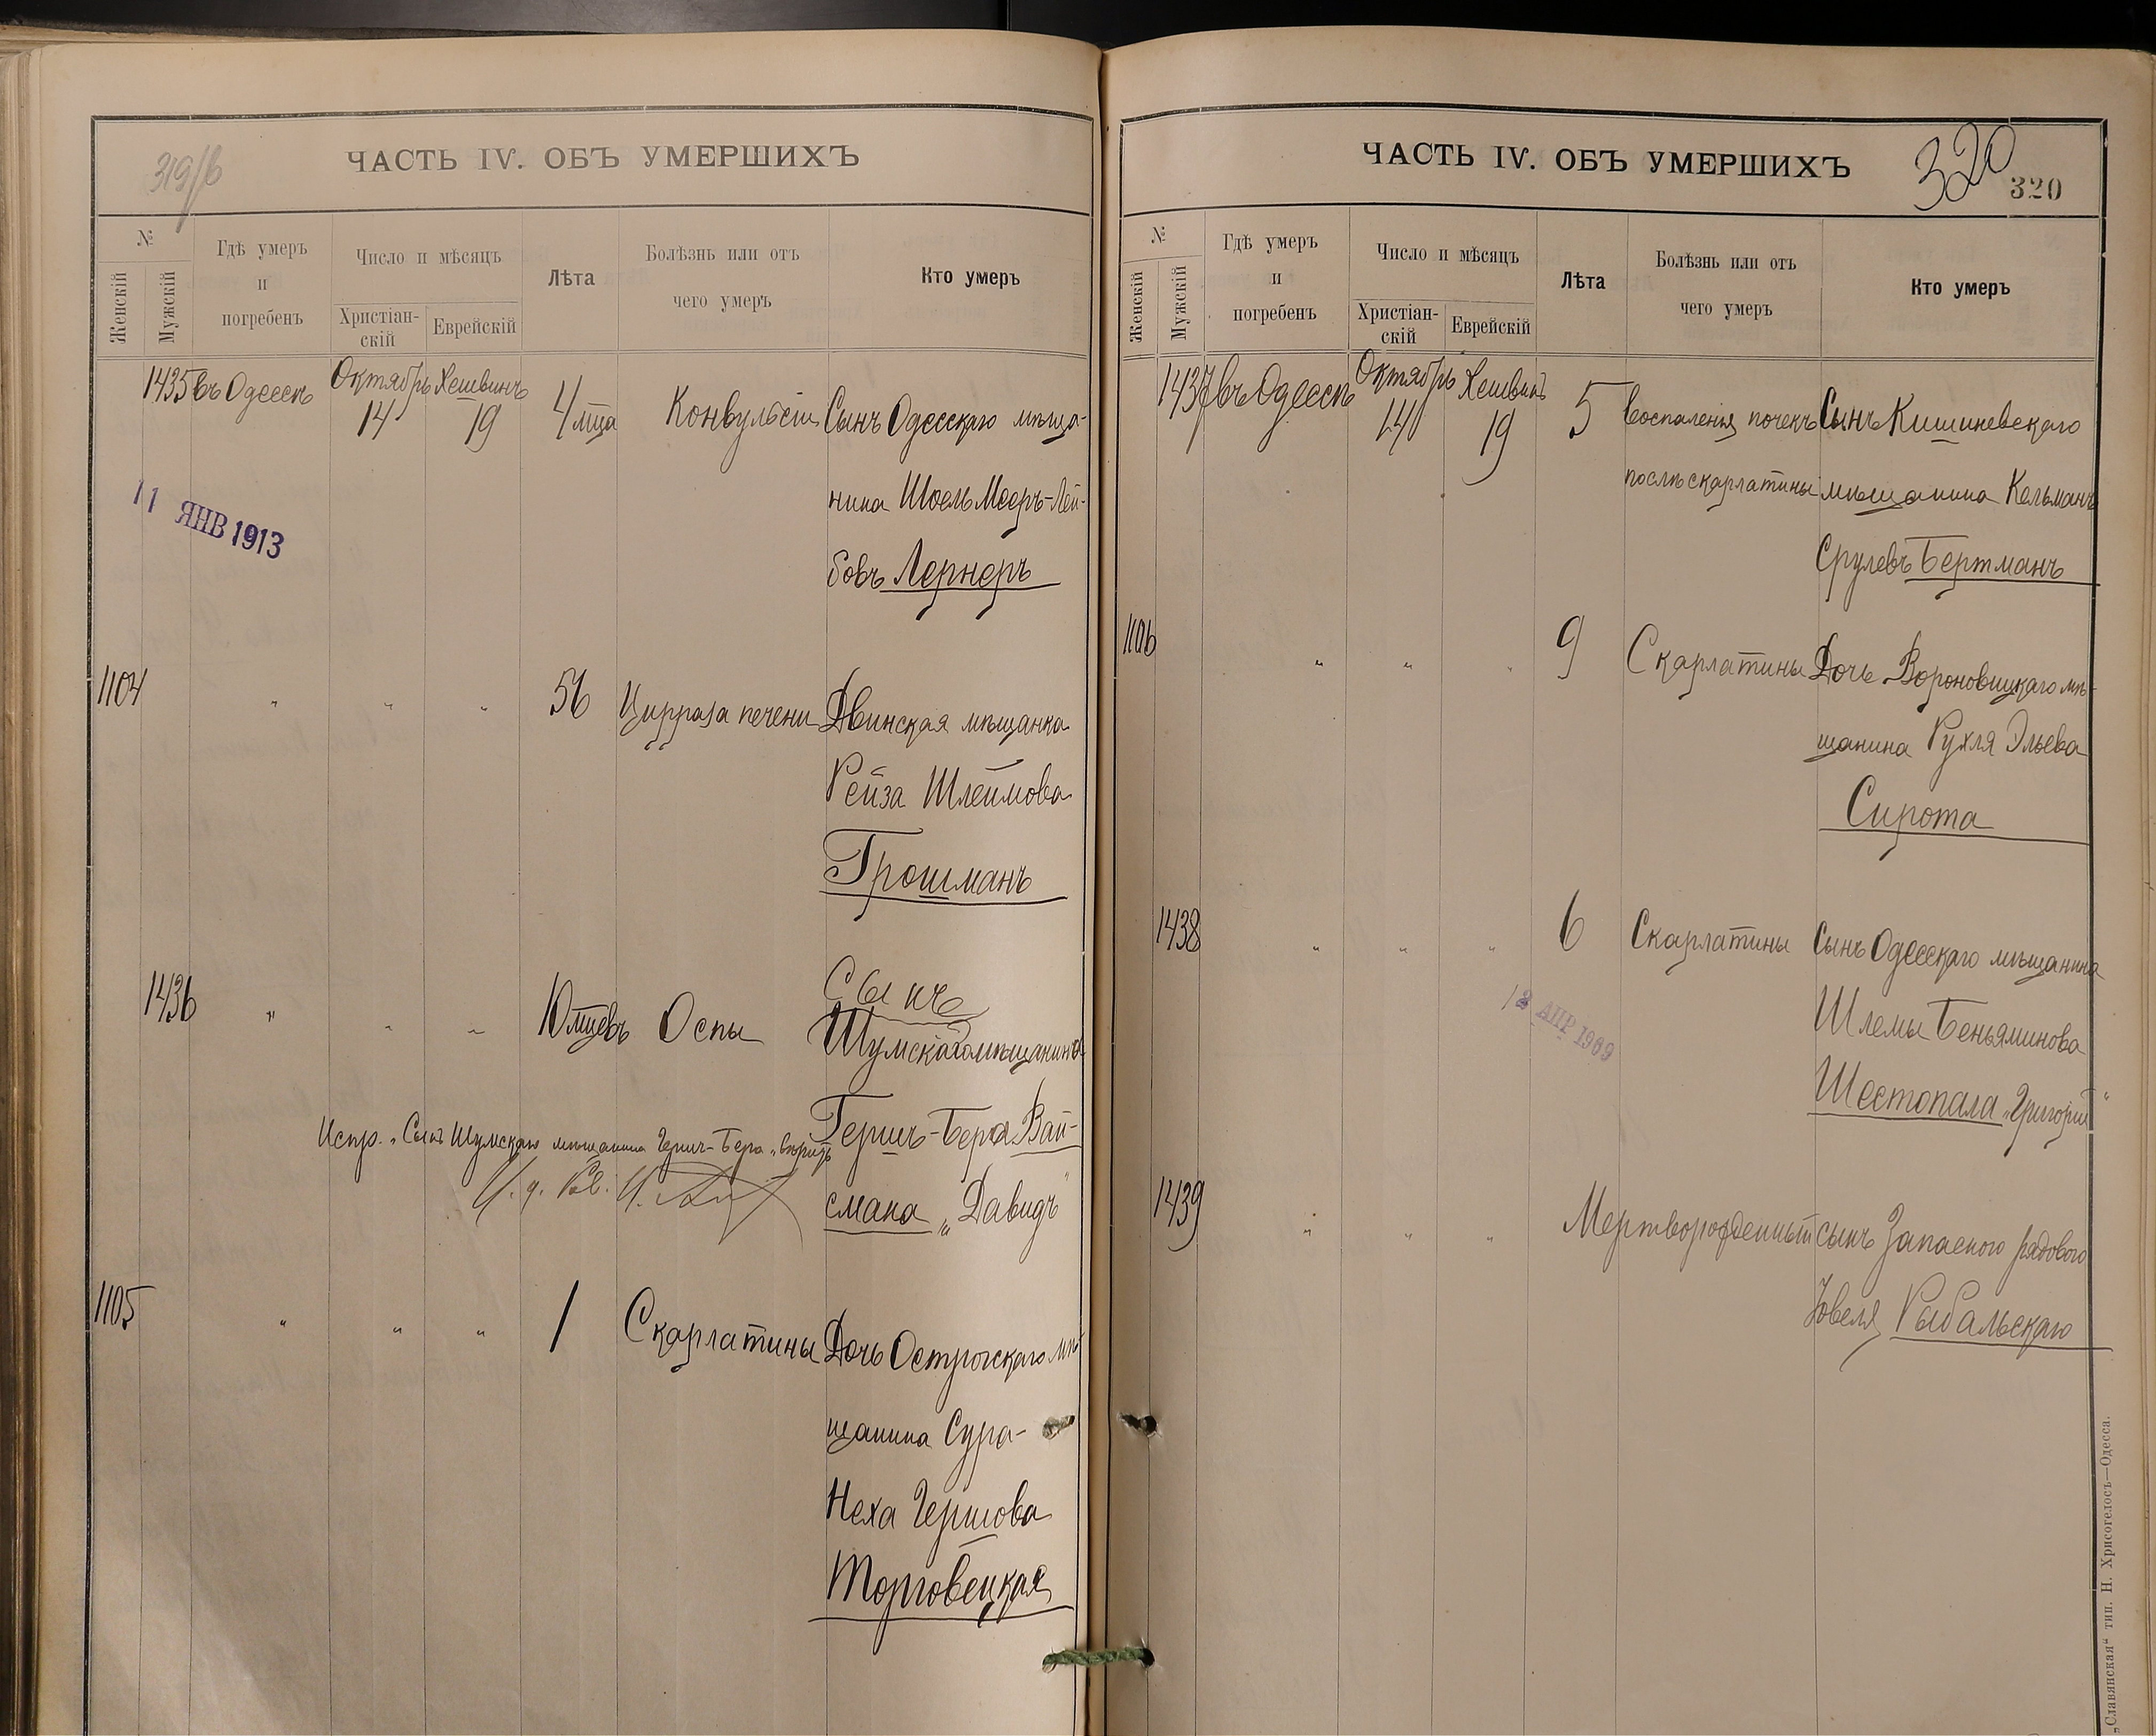 319/б
ЧАСТЬ IV. ОБЪ УМЕРШИХЪ
№
Женскій
Мужскій
Гдѣ умеръ
и
погребенъ
Число и мѣсяцъ
Христіан-
скій
Еврейскій
Лѣта
Болѣзнь или отъ
чего умеръ
Кто умеръ
1435 въ Одессѣ Октябрь 14 Хешвинъ 19 4 мца Конвульсіи Сынъ Одесскаго мѣща-
нина Шоель Мееръ-Лей-
бовъ Лернеръ
11 ЯНВ 1913
1104 " " " 56 Цирроза печени Двинская мѣщанка
Рейза Шлеймова
Грошманъ
1436 " " " 10 мцевъ Оспы Сынъ
Шумскаго мѣщанина
Гершъ-Бера Вай-
смана „Давидъ"
Испр. „Сынъ Шумскаго мѣщанина Герш-Бера" вѣрить
И. д. Рав.
1105 " " " 1 Скарлатины Дочь Острогскаго мѣ-
щанина Сура-
Неха Гершова
Торговецкая
ЧАСТЬ IV. ОБЪ УМЕРШИХЪ
320
320
№
Женскій
Мужскій
Гдѣ умеръ
и
погребенъ
Число и мѣсяцъ
Христіан-
скій
Еврейскій
Лѣта
Болѣзнь или отъ
чего умеръ
Кто умеръ
1437 въ Одессѣ Октябрь 14 Хешвинъ 19 5 Воспаленія почекъ Сынъ Кишиневскаго
послѣ скарлатины мѣщанина Кельманъ
Срулевъ Бертманъ
1106 " " " 9 Скарлатины Дочь Вороновицкаго мѣ-
щанина Рухля Эльева
Сирота
1438 " " " 6 Скарлатины Сынъ Одесскаго мѣщанина
Шлемы Беньяминова
Шестопала „Григорій"
АПР 1909
1439 " " " Мертворожденный сынъ Запасного рядового
Іовеля Рыбальскаго
„Славянская" тип. Н. Хрисогелосъ—Одесса.